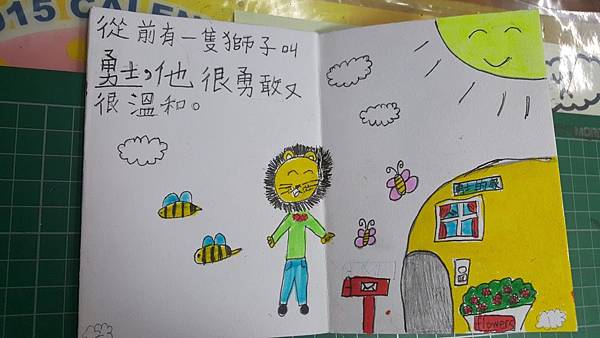 2015 CALEN
從前有一隻獅子叫
勇士,他很勇敢又
很溫和。
勇士的家
flowers